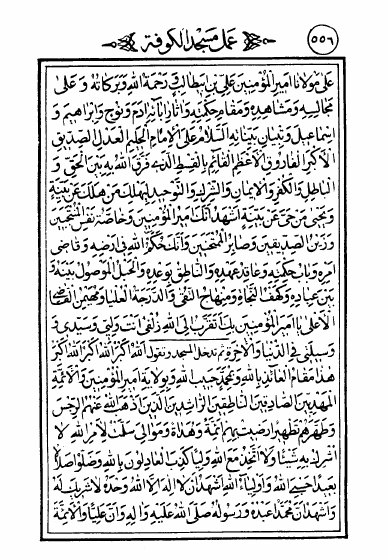 ٥٥٦
عمل مسجد الكوفة
على مولانا امير المؤمنين علي بن ابيطالب ورحمة الله وبركاته وعلى
مجالسه ومشاهده ومقام حكمته واثار ابائه ادم ونوح وابراهيم و
اسماعيل وتبيان بيناته السلام على الامام الحكيم العدل الصديق
الاكبر الفاروق الاعظم القائم بالقسط الذى فرق الله به بين الحق و
الباطل والكفر والايمان والشرك والتوحيد ليهلك من هلك عن بينة
ويحيى من حى عن بينة اشهد انك امير المؤمنين وخاصة نفس المنتجبين
وزين الصديقين وصابر الممتحنين وانك حكم الله فى ارضه وقاضى
امره وباب حكمته وعاقد عهده والناطق بوعده والحبل الموصول بينه و
بين عباده وكهف النجاة ومنهاج التقى والدرجة العليا ومهيمن القاضى
الاعلى يا امير المؤمنين بك اتقرب الى الله زلفى انت وليى وسيدى و
وسيلتى فى الدنيا والاخرة ثم تدخل المسجد وتقول الله اكبر الله اكبر الله اكبر
هذا مقام العائذ بالله وبمحمد حبيب الله وبولاية امير المؤمنين والائمة
المهديين الصادقين الناطقين الراشدين الذين اذهب الله عنهم الرجس
وطهرهم تطهيرا رضيت بهم ائمة وهداة وموالى سلمت لامر الله لا
اشرك به شيئا ولا اتخذ مع الله وليا كذب العادلون بالله وضلوا ضلالا
بعيدا حسبى الله واولياء الله اشهد ان لا اله الا الله وحده لا شريك له
واشهد ان محمدا عبده ورسوله صلى الله عليه واله وان عليا والائمة